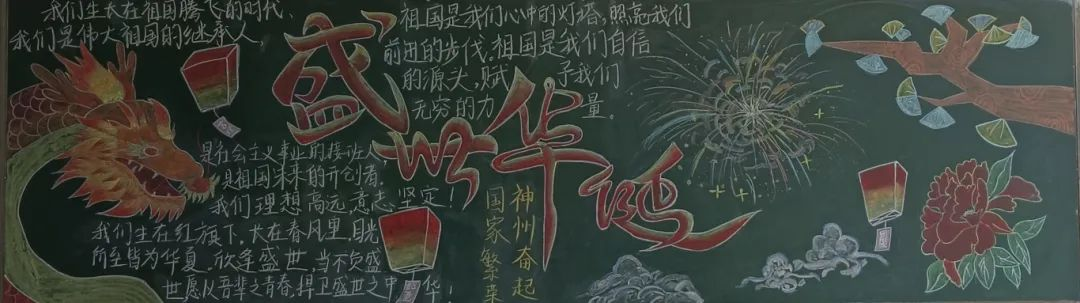 我们生长在祖国腾飞的时代、
我们是伟大祖国的继承人，
是社会主义事业的接班人
是祖国未来的开创者，
我们理想高远，意志坚定！
我们生在红旗下，长在春风里，目光
所至皆为华夏。欣逢盛世，当不负盛
世愿以吾辈之青春，捍卫盛世之中华！
盛世华诞
祖国是我们心中的灯塔，照亮我们
前进的步伐。祖国是我们自信
的源头，赋予我们
无穷的力量。
神州奋起
国家繁荣